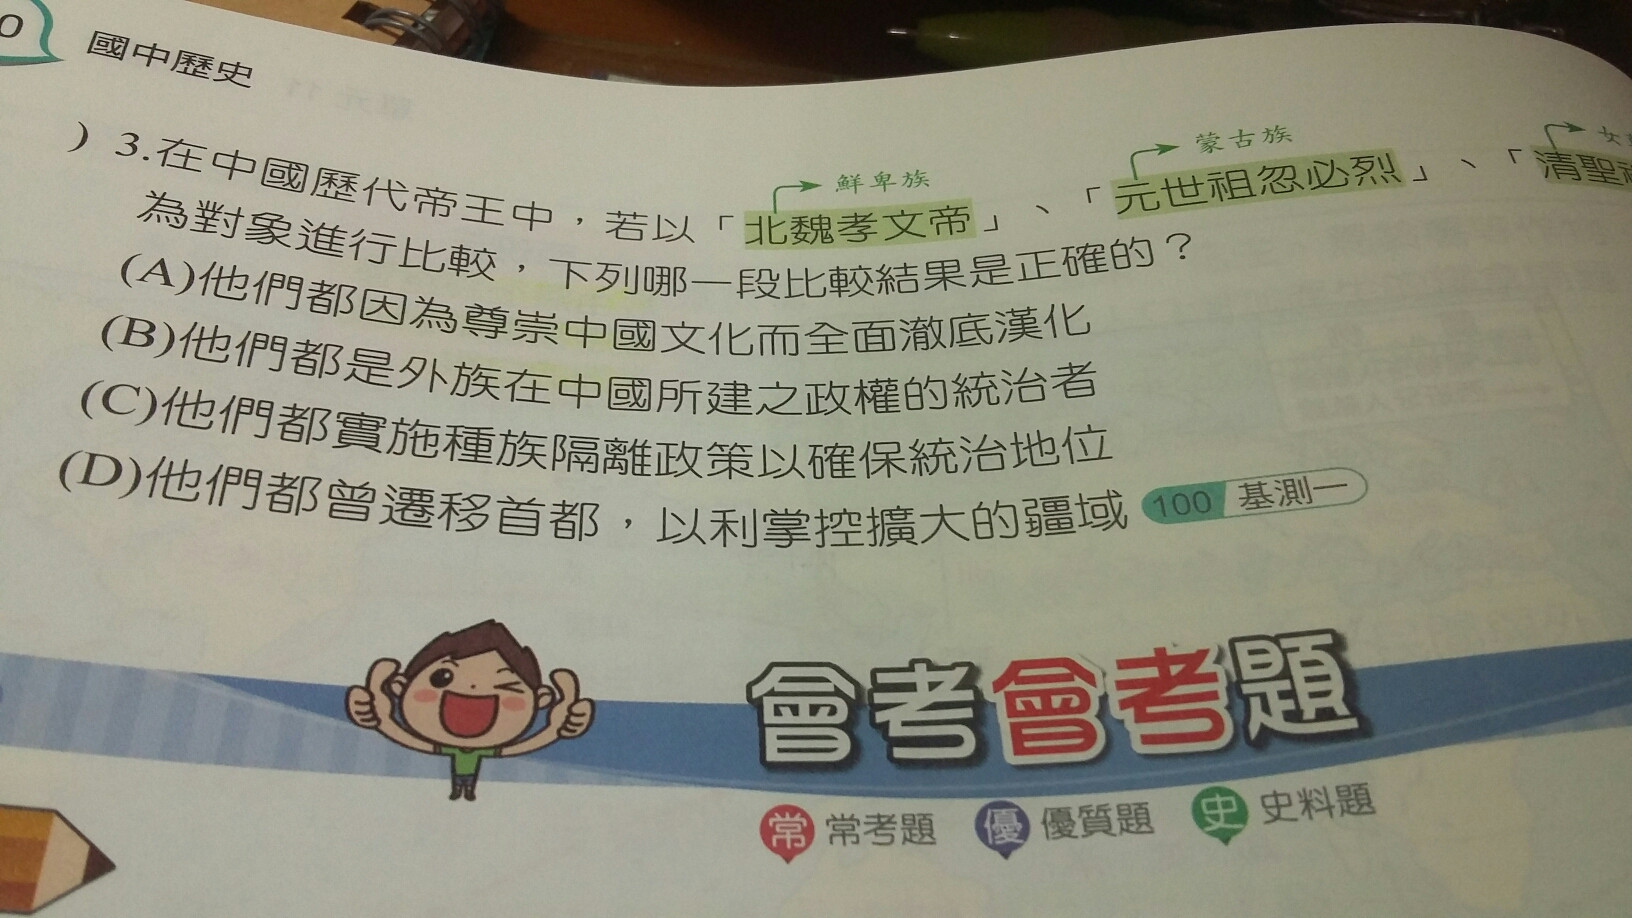 國中歷史
鮮卑族
蒙古族
女
) 3.在中國歷代帝王中,若以「北魏孝文帝」、「元世祖忽必烈」、「清聖
為對象進行比較,下列哪一段比較結果是正確的?
(A)他們都因為尊崇中國文化而全面澈底漢化
(B)他們都是外族在中國所建之政權的統治者
(C)他們都實施種族隔離政策以確保統治地位
(D)他們都曾遷移首都,以利掌控擴大的疆域 100 基測一
會考會考題
常 常考題 優 優質題 史 史料題